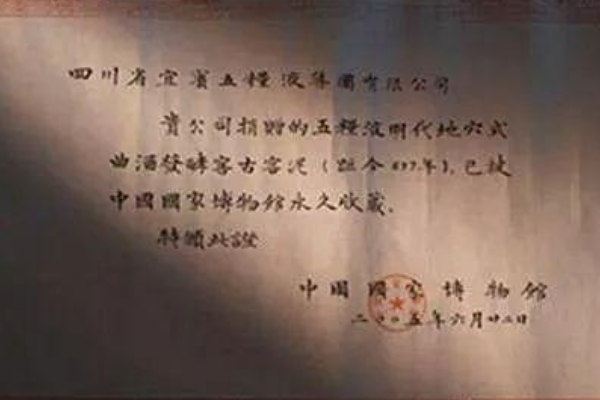 四川省宜賓五糧液集團有限公司
貴公司捐贈的五糧液明代地穴式
曲酒發酵窖古窖泥（距今637年），已被
中國國家博物館永久收藏。
特頒此證
中國國家博物館
二〇〇五年六月廿二日